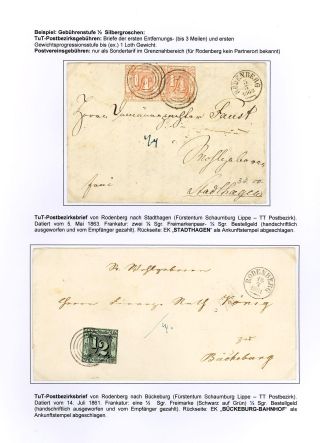 Beispiel: Gebührenstufe ½ Silbergroschen:
TuT-Postbezirksgebühren: Briefe der ersten Entfernungs- (bis 3 Meilen) und ersten
Gewichtsprogressionsstufe bis (ex.) 1 Loth Gewicht.
Postvereinsgebühren: nur als Sondertarif im Grenznahbereich (für Rodenberg kein Partnerort bekannt)
RODENBERG
Herrn Faust
Wohlgeboren
frei
Stadthagen
TuT-Postbezirksbrief von Rodenberg nach Stadthagen (Fürstentum Schaumburg Lippe – TT Postbezirk).
Datiert vom 5. Mai 1863. Frankatur: zwei ¼ Sgr. Freimarkenpaar- ½ Sgr. Bestellgeld (handschriftlich
ausgeworfen und vom Empfänger gezahlt). Rückseite: EK „STADTHAGEN" als Ankunftstempel abgeschlagen.
Sr. Wohlgeboren
RODENBERG
Herrn König
1/2
Bückeburg
TuT-Postbezirksbrief von Rodenberg nach Bückeburg (Fürstentum Schaumburg Lippe – TT Postbezirk).
Datiert vom 14. Juli 1861. Frankatur: eine ½ Sgr. Freimarke (Schwarz auf Grün) ½ Sgr. Bestellgeld
(handschriftlich ausgeworfen und vom Empfänger gezahlt). Rückseite: EK „BÜCKEBURG-BAHNHOF" als
Ankunftstempel abgeschlagen.